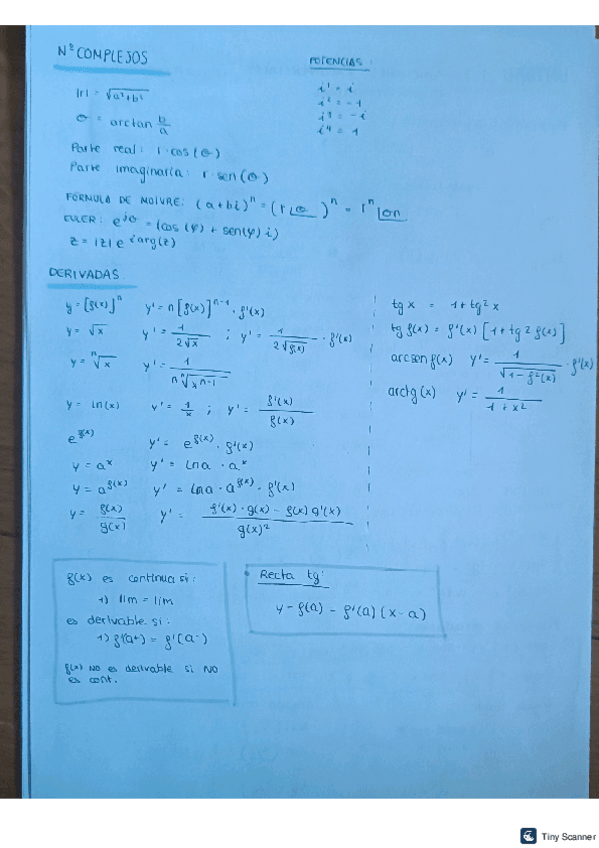 Nº COMPLEJOS
POTENCIAS:
i¹ = i
i² = -1
i³ = -i
i⁴ = 1
|r| = √(a²+b²)
θ = arctan b/a
Parte real: r·cos(θ)
Parte imaginaria: r·sen(θ)
FÓRMULA DE MOIVRE: (a+bi)ⁿ = (r∠θ)ⁿ = rⁿ∠θn
EULER: e^{iθ} = (cos(φ) + sen(φ)i)
z = |z| e^{i arg(z)}
DERIVADAS
y = [f(x)]ⁿ y' = n[f(x)]ⁿ⁻¹ · f'(x)
y = √x y' = 1/(2√x) ; y' = 1/(2√f(x)) · f'(x)
y = ⁿ√x y' = 1/(n ⁿ√(xⁿ⁻¹))
y = ln(x) y' = 1/x ; y' = f'(x)/f(x)
e^{f(x)} y' = e^{f(x)} · f'(x)
y = aˣ y' = lna · aˣ
y = a^{f(x)} y' = lna · a^{f(x)} · f'(x)
y = f(x)/g(x) y' = (f'(x)·g(x) - f(x)g'(x))/g(x)²
tg x = 1 + tg²x
tg f(x) = f'(x) [1 + tg² f(x)]
arcsen f(x) y' = 1/√(1-f²(x)) · f'(x)
arctg(x) y' = 1/(1+x²)
f(x) es continua si:
1) lim = lim
es derivable si:
1) f'(a+) = f'(a-)
f(x) NO es derivable si NO
es cont.
Recta tg:
y - f(a) - f'(a) (x-a)
Tiny Scanner